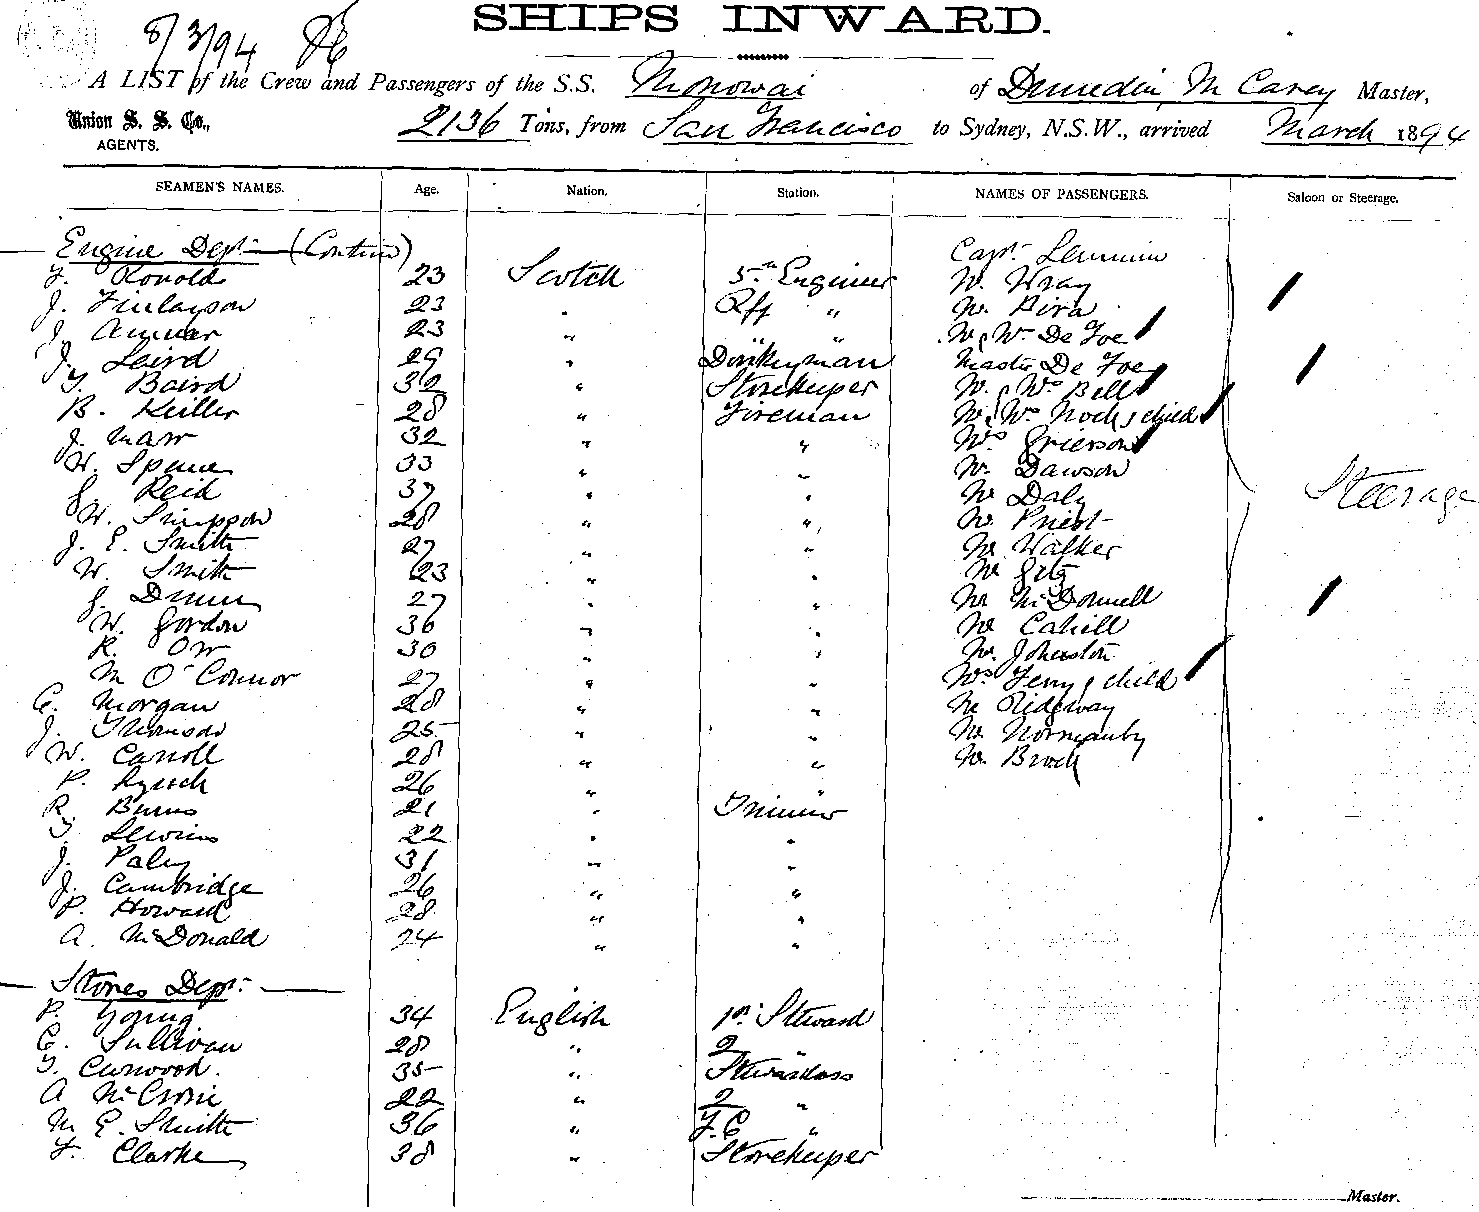 SHIPS INWARD.
8/3/94
A LIST of the Crew and Passengers of the S.S. Monowai of Dunedin M Carey Master,
Union S. S. Co., 2136 Tons, from San Francisco to Sydney, N.S.W., arrived March 1894
AGENTS.
SEAMEN'S NAMES. Age. Nation. Station. NAMES OF PASSENGERS. Saloon or Steerage.
Engine Dept. (Contin) Capt.
Ronald 23 Scotch 5th Engineer Mr. Wray
J. Finlayson 23 " Rfg " Mr.
J. 23 " " Mr & Mrs De Foe
J. Laird 29 " Donkeyman Master De Foe
T. Baird 32 " Storekeeper Mr. & Mrs Bell
B. Keiller 28 " Fireman Mr. & Mrs Nock & child
J. Marr 32 " " Mrs Grierson
W. Spence 33 " " Mr. Dawson
J. Reid 37 " " Mr Daly Steerage
W. Simpson 28 " " Mr. Priest
J. E. Smith 27 " " Mr Walker
W. Smith 23 " " Mr
J. Dunn 27 " " Mr McDonnell
W. Gordon 36 " " Mr Cahill
R. Orr 30 " " Mr. Johnston
M O'Connor 27 " " Mrs & child
C. Morgan 28 " " Mr Ridgway
J. Thomson 25 " " Mr. Normanby
W. Carroll 28 " " Mr. Brock
P. Lynch 26 " "
R. Burns 21 " Trimmer
T. Lewins 22 " "
J. Paley 31 " "
J. Cambridge 26 " "
P. Howard 28 " "
A. McDonald 24 " "
Stores Dept.
P. Young 34 English 1st Steward
C. Sullivan 28 " 2 "
T. Curwood. 35 " Stewardess
A McCrone 22 " 2 "
M E. Smith 36 " F.C "
F. Clarke 38 " Storekeeper
Master.